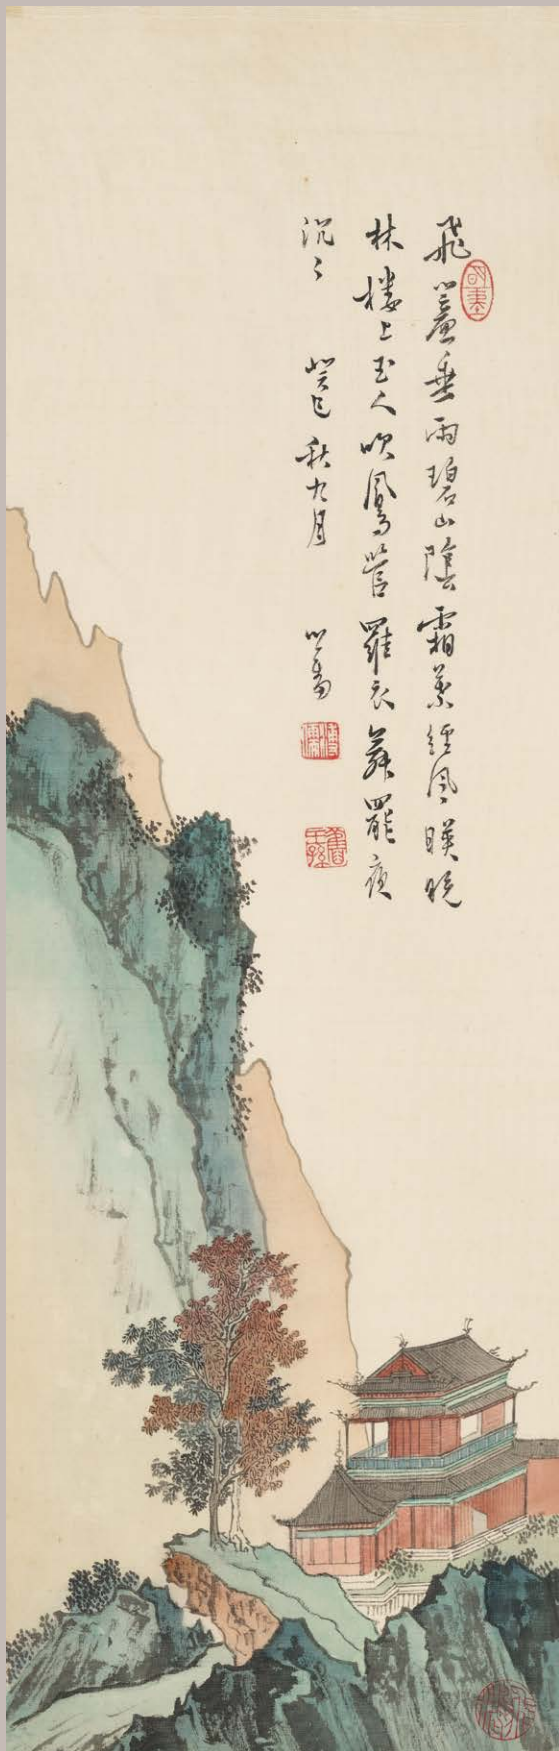 飛簾垂雨碧山陰霜葉經風暎晚
林樓上玉人吹鳳管羅衣舞罷夜
沉〻 癸巳秋九月 心畬
溥儒
舊王孫